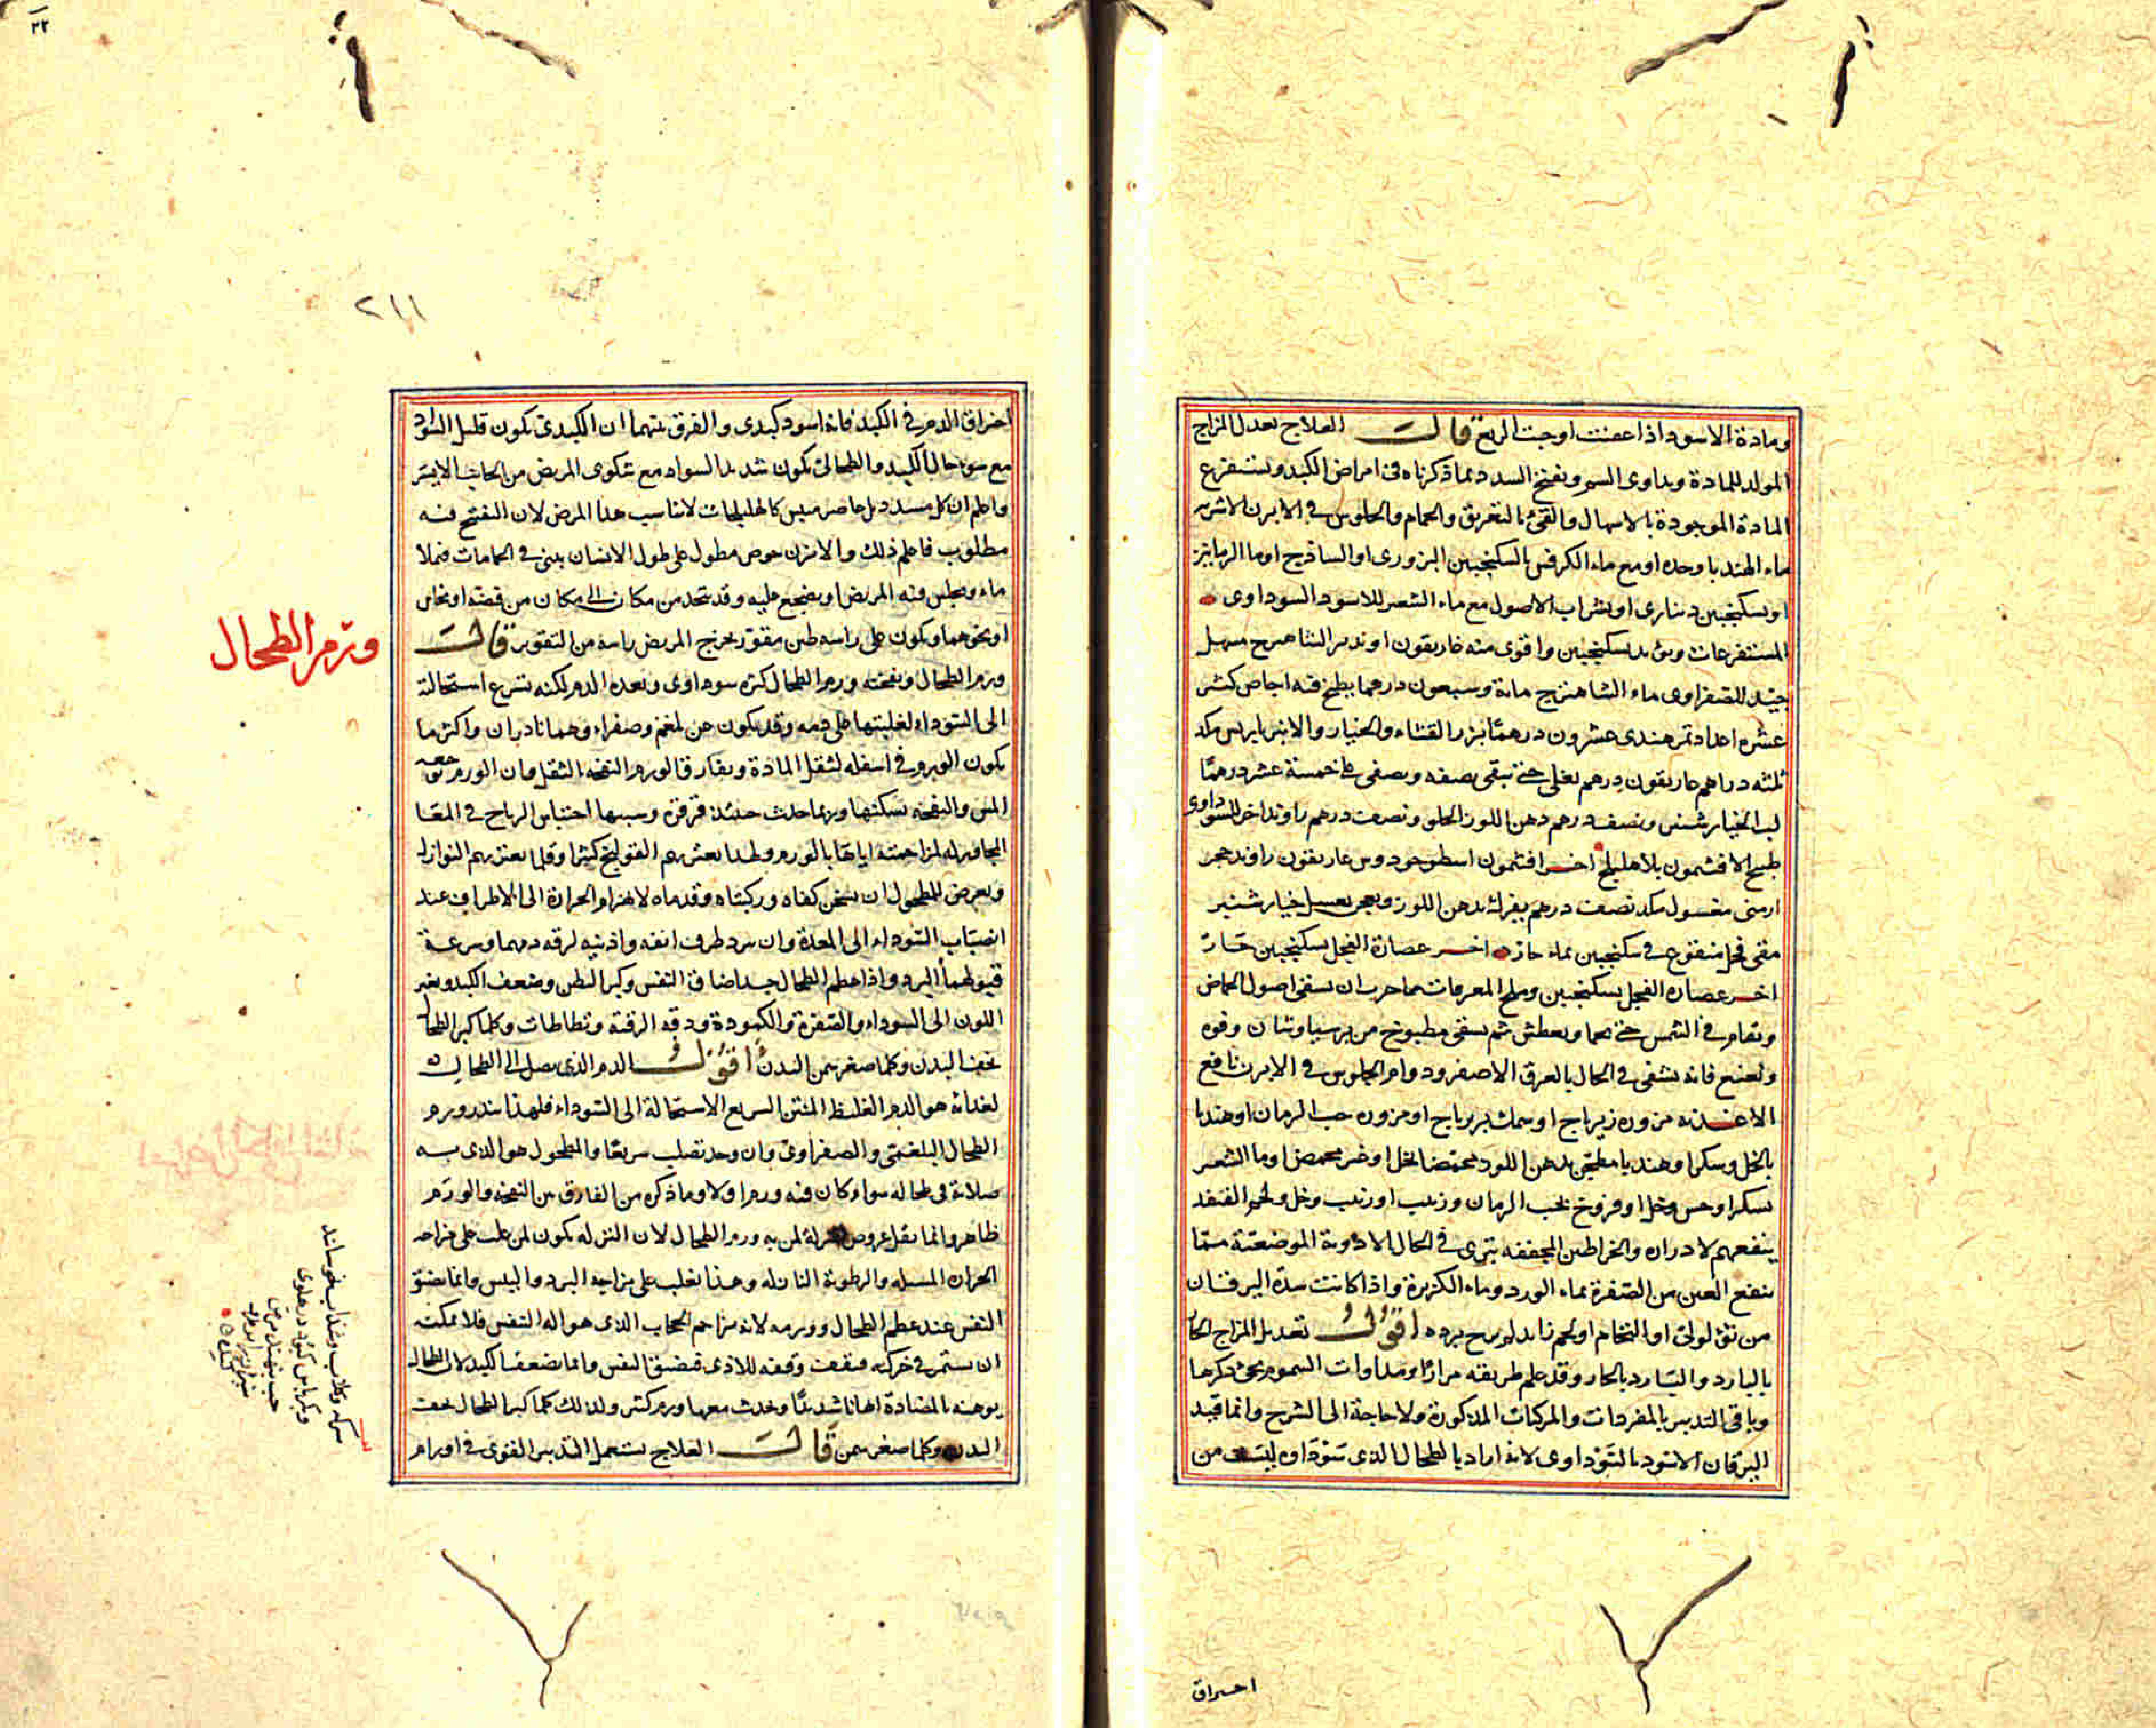 ومادة الاسود اذا عفنت اوجبت الربع قالت العلاج تعدل المزاج
المولد للمادة ويداوى السم وتفتح السدد بما ذكرناه فى امراض الكبد ويستفرغ
المادة الموجودة بالاسهال والقئ بالتعريق والحمام والجلوس فى الابزن الاشربه
ماء الهندبا وحده او مع ماء الكرفس بالسكنجبين البزورى او الساذج او ما الرمانين
او بسكنجبين دينارى او بشراب الاصول مع ماء الشعير للاسود السوداوى
المستفرغات بسكنجبين واقوى منه غاريقون مسهل
جيد للصفراوى ماء الشاهترج مائة وسبعون درهما يطبخ فيه اجاص كثير
عشره اعداد تمر هندى عشرون درهما بزر القثاء والخيار والانبرباريس مكد
ثلثه دراهم غاريقون درهم يغلى حتى يبقى نصفه ويصفى على خمسة عشر درهما
لب الخيار شنبر ونصف درهم دهن اللوز الحلو ونصف درهم راوند اخر للسوداوى
طبيخ الافتيمون بلا هليلج اخر افتيمون اسطوخودوس غاريقون راوند حجر
ارمنى مغسول مكد نصف درهم يفرك بدهن اللوز ويعجن بعسل خيار شنبر
مقئ فجل منقوع فى سكنجبين بماء حار اخر عصارة الفجل بسكنجبين حار
اخر عصاره الفجل بسكنجبين وملح المعرقات مما جرب ان يسقى اصول الحماض
ويقام فى الشمس حتى يحما ويعطش ثم يسقى مطبوخ من برسياوشان وفوه
ونعنع فانه يشفى فى الحال بالعرق الاصفر ودوام الجلوس فى الابزن نافع
الاغذيه مزوره زيرباج او سمك بزيرباج او مزوره حب الرمان او هندبا
بالخل وسكر او هندبا مطجن بدهن اللوز محمضا بخل او غير محمض او ما الشعير
بسكر او خس وخل او فروخ بحب الرمان وزبيب او زبيب وخل ولحم القنفد
ينفعهم لادراره والخراطين المجففه تبرئ فى الحال الادوية الموضعية مما
ينفع العين من الصفرة بماء الورد وماء الكزبرة واذا كانت سدة اليرقان
من ثؤلولى او التحام او لحم زايد لم يرج برده اقول تعديل المزاج الحار
بالبارد والبارد بالحار وقد علم طريقه مرارا ومداوات السموم يجئ ذكرها
وباقى التدبير بالمفردات والمركبات المذكورة ولا حاجة الى الشرح وانما قيد
اليرقان الاسود بالسوداوى لانه اراد بالطحال الذى سوداوه ليست من
احراق
٢١١
احتراق الدم فى الكبد فانه اسود كبدى والفرق بينهما ان الكبدى يكون قليل السواد
مع سوء حال الكبد والطحالى يكون شديد السواد مع شكوى المريض من الجانب الايسر
واعلم ان كل مسدد بل عاصر ميبس كالهليلجات لا تناسب هذا المرض لان التفتيح فيه
مطلوب فاعلم ذلك والابزن حوض مطول على طول الانسان يبنى فى الحمامات فيملا
ماء ويجلس فيه المريض او يضجع عليه وقد يتخذ من مكان الى مكان من فضة او نحاس
او نحوهما ويكون على راسه طبق مقور يخرج المريض راسه من التقوير قالت
ورم الطحال ونفخته ورم الطحال اكثره سوداوى وبعده الدم لكنه تسرع استحالته
الى السوداء لغلبتها على دمه وقد يكون عن بلغم وصفراء وهما نادران واكثر ما
يكون الورم فى اسفله لثقل المادة ويفارق الورم النفخه بالثقل وان الورم معه
المس والنفخه يسكنها وربما حدث حينئذ قرقرة وسببها احتباس الرياح فى المعا
المجاور له لمزاحمته اياها بالورم ولهذا يعتريهم القولنج كثيرا وقلما يعتريهم النوازل
ويعرض للمطحول ان يسخن كفاه وركبتاه وقدماه لانهزام الحرارة الى الاطراف عند
انصباب السوداء الى المعدة وان يبرد طرف انفه واذنيه لرقه دمهما وسرعة
قبولهما البرد واذا عظم الطحال جدا ضاق التنفس وكبر البطن وضعف الكبد وتغير
اللون الى السوداء والصفرة والكمودة ودقه الرقبة وكلما كبر الطحال
نحف البدن وكلما صغر سمن البدن اقول الدم الذى يصل الى الطحال
لغذائه هو الدم الغليظ المنتن السريع الاستحالة الى السوداء فلهذا يندر ورم
الطحال البلغمى والصفراوى وان وجد تصلب سريعا والمطحول هو الذى به
صلابة فى طحاله سواء كان فيه ورم او لا وما ذكره من الفارق بين النفخه والورم
ظاهر وانما يقل عروض النزلة لمن به ورم الطحال لان النزله يكون لمن غلب على مزاجه
الحرارة المسيله والرطوبة النازله وهذا يغلب على مزاجه البرد واليبس وانما ضيق
التنفس عند عظم الطحال وورمه لانه يزاحم الحجاب الذى هو اله التنفس فلا يمكنه
ان يستمر فى حركه فيقف وقفه للاذى فيضيق النفس وانما يضعف الكبد لان الطحال
يوهنه بالمضادة ايهانا شديدا ويحدث معها ورم كثير ولذلك كلما كبر الطحال نحف
البدن وكلما صغر سمن قالت العلاج يستعمل التدبير القوى فى اورام
ورم الطحال